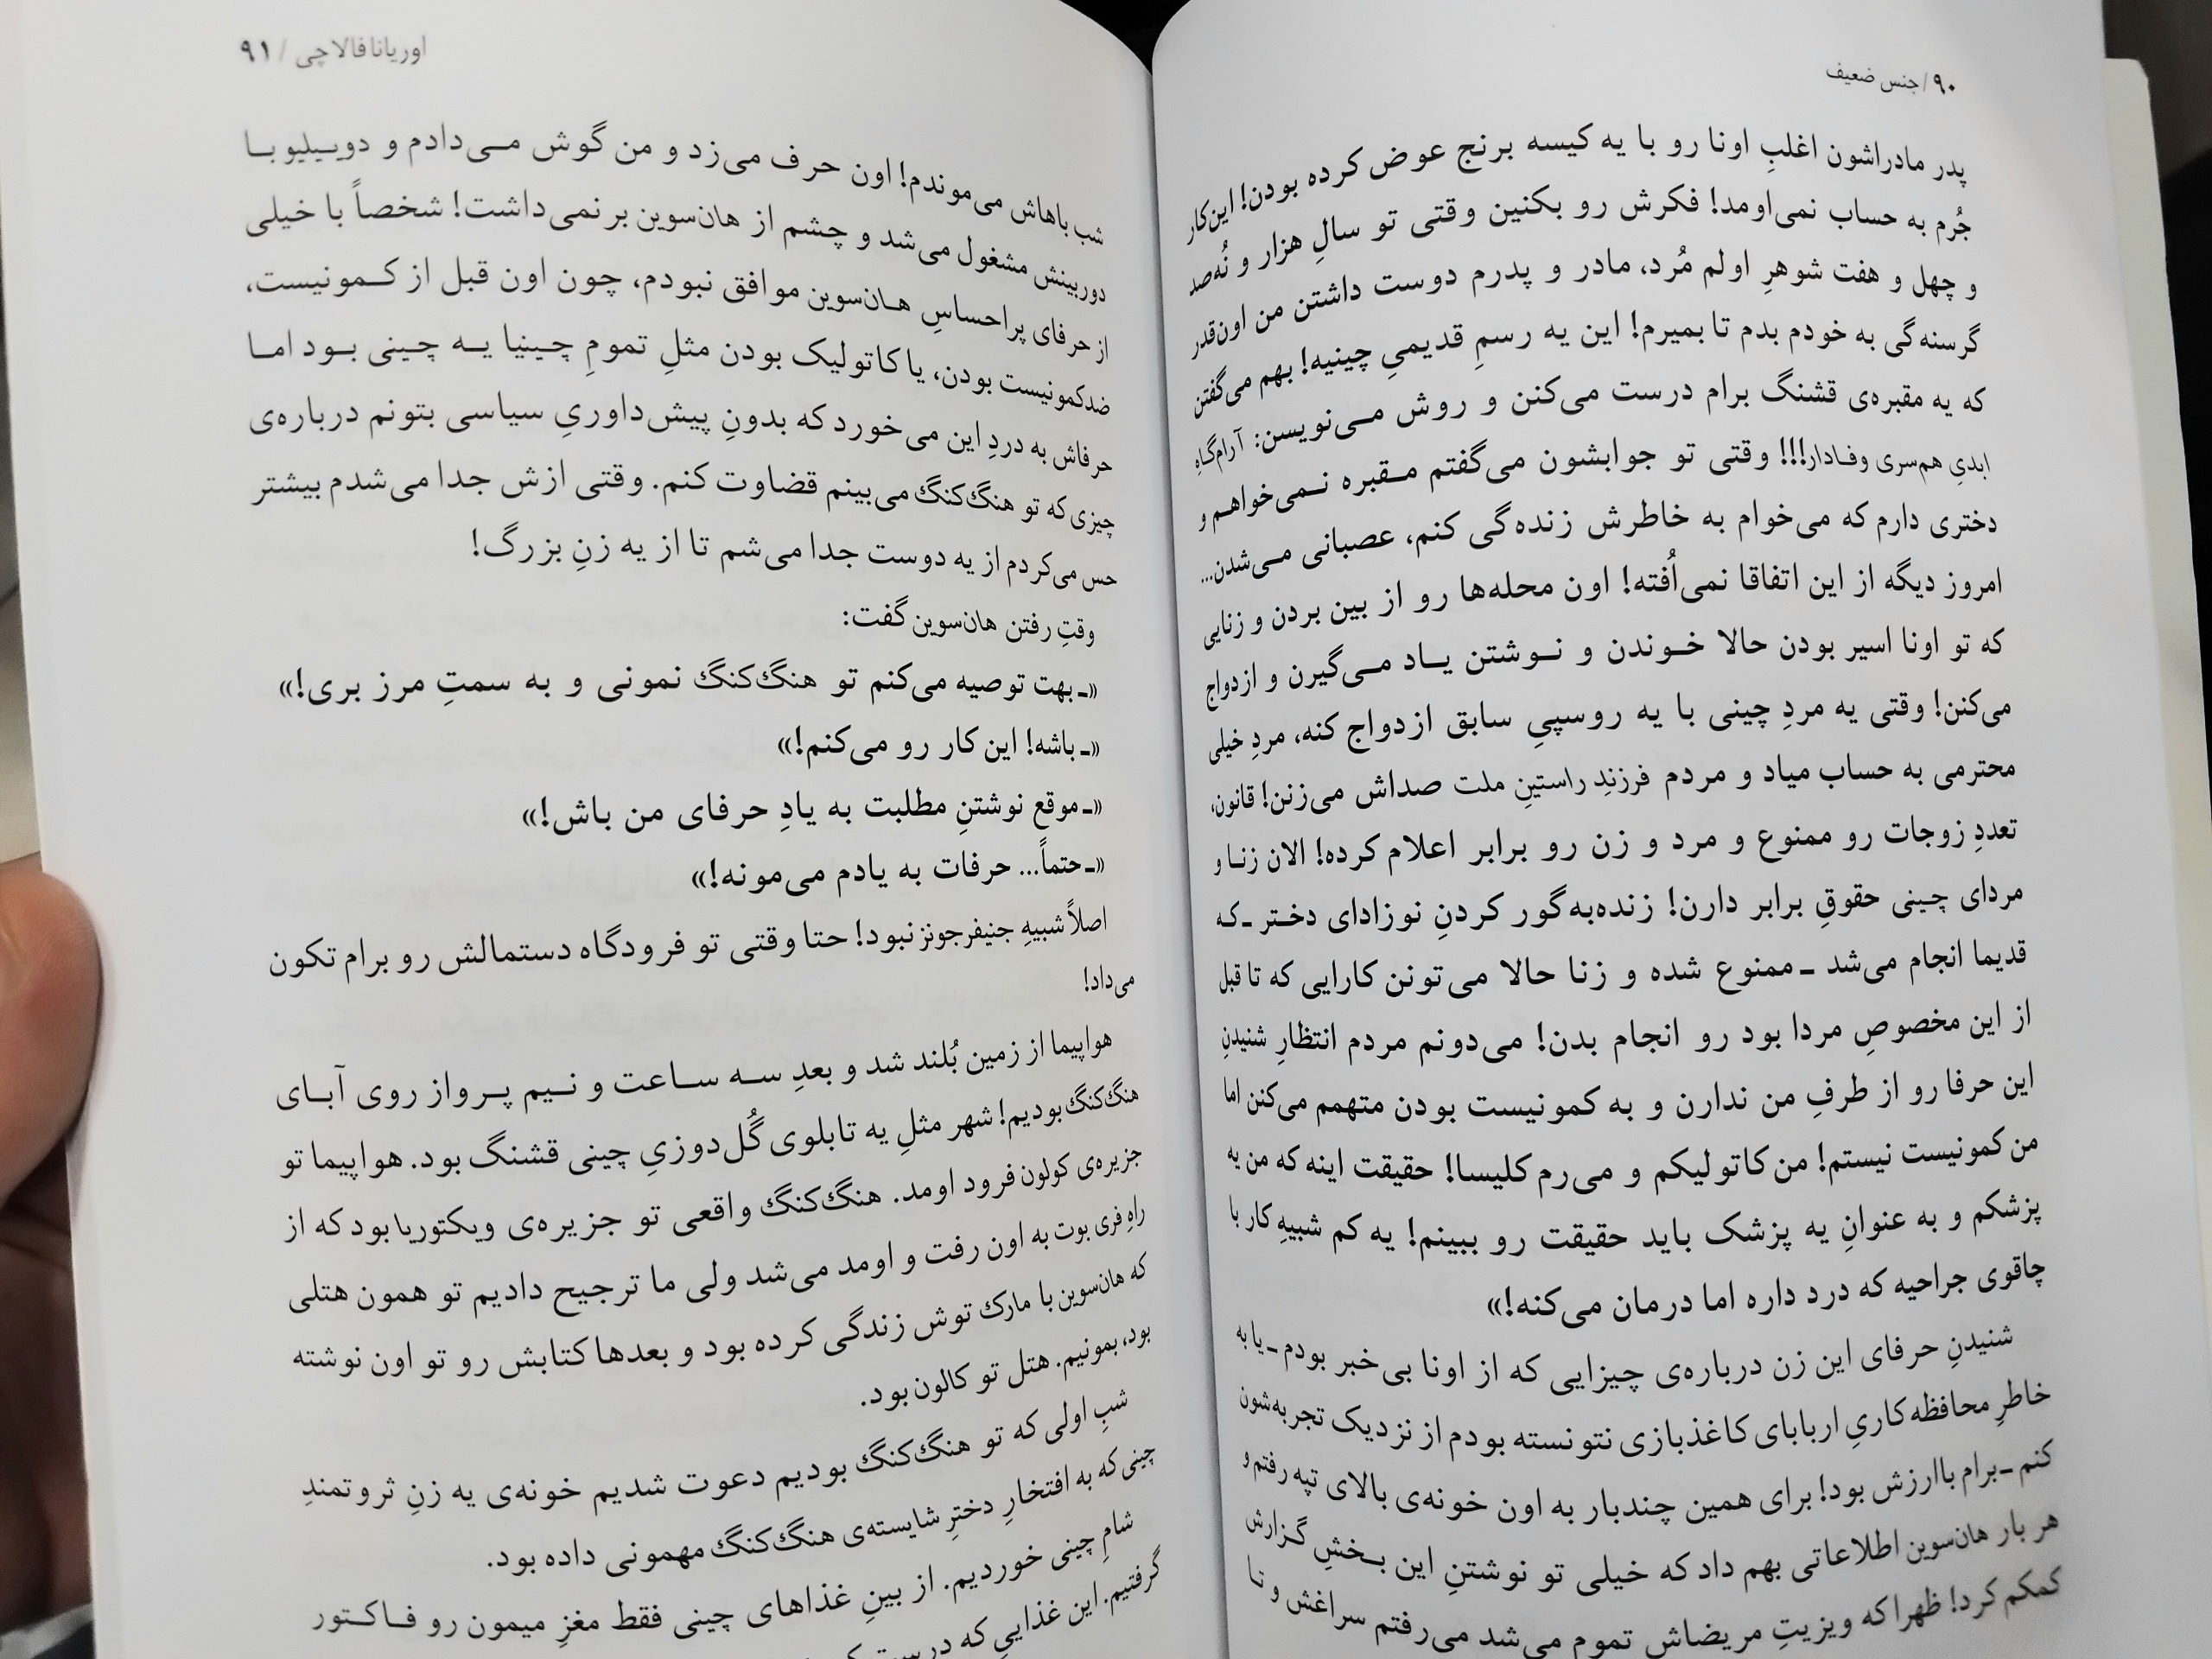 ۹۰ / جنس ضعیف
پدر مادراشون اغلبِ اونا رو با یه کیسه برنج عوض کرده بودن! این‌کار
جُرم به حساب نمی‌اومد! فکرش رو بکنین وقتی تو سالِ هزار و نُه‌صد
و چهل و هفت شوهرِ اولم مُرد، مادر و پدرم دوست داشتن من اون‌قدر
گرسنه‌گی به خودم بدم تا بمیرم! این یه رسمِ قدیمیِ چینیه! بهم می‌گفتن
که یه مقبره‌ی قشنگ برام درست می‌کنن و روش مـی‌نویسن: آرام‌گـاهِ
ابدیِ هم‌سری وفـادار!!! وقتی تو جوابشون می‌گفتم مـقبره نـمی‌خواهـم و
دختری دارم که می‌خوام به خاطرش زنده‌گی کنم، عصبانی مـی‌شدن...
امروز دیگه از این اتفاقا نمی‌اُفته! اون محله‌ها رو از بین بردن و زنایی
که تو اونا اسیر بودن حالا خـوندن و نـوشتن یـاد مـی‌گیرن و ازدواج
می‌کنن! وقتی یه مردِ چینی با یه روسپیِ سابق ازدواج کنه، مردِ خیلی
محترمی به حساب میاد و مردم فرزندِ راستینِ ملت صداش می‌زنن! قانون،
تعددِ زوجات رو ممنوع و مرد و زن رو برابر اعلام کرده! الان زنـا و
مردای چـینی حقوقِ برابر دارن! زنده‌به‌گور کردنِ نوزادای دخـتر ـ‌کـه
قدیما انجام می‌شد ـ ممنوع شده و زنا حالا می‌تونن کارایی که تا قبل
از این مخصوصِ مردا بود رو انجام بدن! می‌دونم مردم انتظارِ شنیدنِ
این حرفا رو از طرفِ من ندارن و به کمونیست بودن متهمم می‌کنن اما
من کمونیست نیستم! من کاتولیکم و می‌رم کلیسا! حقیقت اینه که من یه
پزشکم و به عنوانِ یه پزشک باید حقیقت رو ببینم! یه کم شبیهِ کار با
چاقوی جراحیه که درد داره اما درمان می‌کنه!»
شنیدنِ حرفای این زن درباره‌ی چیزایی که از اونا بی‌خبر بودم ـ یا به
خاطرِ محافظه‌کاریِ اربابای کاغذبازی نتونسته بودم از نزدیک تجربه‌شون
کنم ـ برام باارزش بود! برای همین چندبار به اون خونه‌ی بالای تپه رفتم و
هر بار هان‌سوین اطلاعاتی بهم داد که خیلی تو نوشتنِ این بـخشِ گـزارش
کمکم کرد! ظهرا که ویزیتِ مریضاش تموم می‌شد می‌رفتم سراغش و تـا
اوریانا فالاچی / ۹۱
شب باهاش می‌موندم! اون حرف می‌زد و من گوش مـی‌دادم و دوییلیو بـا
دوربینش مشغول می‌شد و چشم از هان‌سوین بر نمی‌داشت! شخصاً با خیلی
از حرفای پراحساسِ هـان‌سوین موافق نبودم، چون اون قبل از کـمونیست،
ضدکمونیست بودن، یا کاتولیک بودن مثلِ تمومِ چـینیا یـه چـینی بـود امـا
حرفاش به دردِ این می‌خورد که بدونِ پیش‌داوریِ سیاسی بتونم درباره‌ی
چیزی که تو هنگ‌کنگ می‌بینم قضاوت کنم. وقتی ازش جدا می‌شدم بیشتر
حس می‌کردم از یه دوست جدا می‌شم تا از یه زنِ بزرگ!
وقتِ رفتن هان‌سوین گفت:
«ـ بهت توصیه می‌کنم تو هنگ‌کنگ نمونی و به سمتِ مرز بری!»
«ـ باشه! این کار رو می‌کنم!»
«ـ موقع نوشتنِ مطلبت به یادِ حرفای من باش!»
«ـ حتماً... حرفات به یادم می‌مونه!»
اصلاً شبیهِ جنیفرجونز نبود! حتا وقتی تو فرودگاه دستمالش رو برام تکون
می‌داد!
هواپیما از زمین بُلند شد و بعدِ سـه سـاعت و نـیم پـرواز روی آبـای
هنگ‌کنگ بودیم! شهر مثلِ یه تابلوی گُل‌دوزیِ چینی قشنگ بود. هواپیما تو
جزیره‌ی کولون فرود اومد. هنگ‌کنگ واقعی تو جزیره‌ی ویکتوریا بود که از
راهِ فری بوت به اون رفت و اومد می‌شد ولی ما ترجیح دادیم تو همون هتلی
که هان‌سوین با مارک توش زندگی کرده بود و بعدها کتابش رو تو اون نوشته
بود، بمونیم. هتل تو کالون بود.
شبِ اولی که تو هنگ‌کنگ بودیم دعوت شدیم خونه‌ی یه زنِ ثروتمندِ
چینی که به افتخارِ دخترِ شایسته‌ی هنگ‌کنگ مهمونی داده بود.
شامِ چینی خوردیم. از بینِ غذاهای چینی فقط مغزِ میمون رو فـاکـتور
گرفتیم. این غذایی که درست